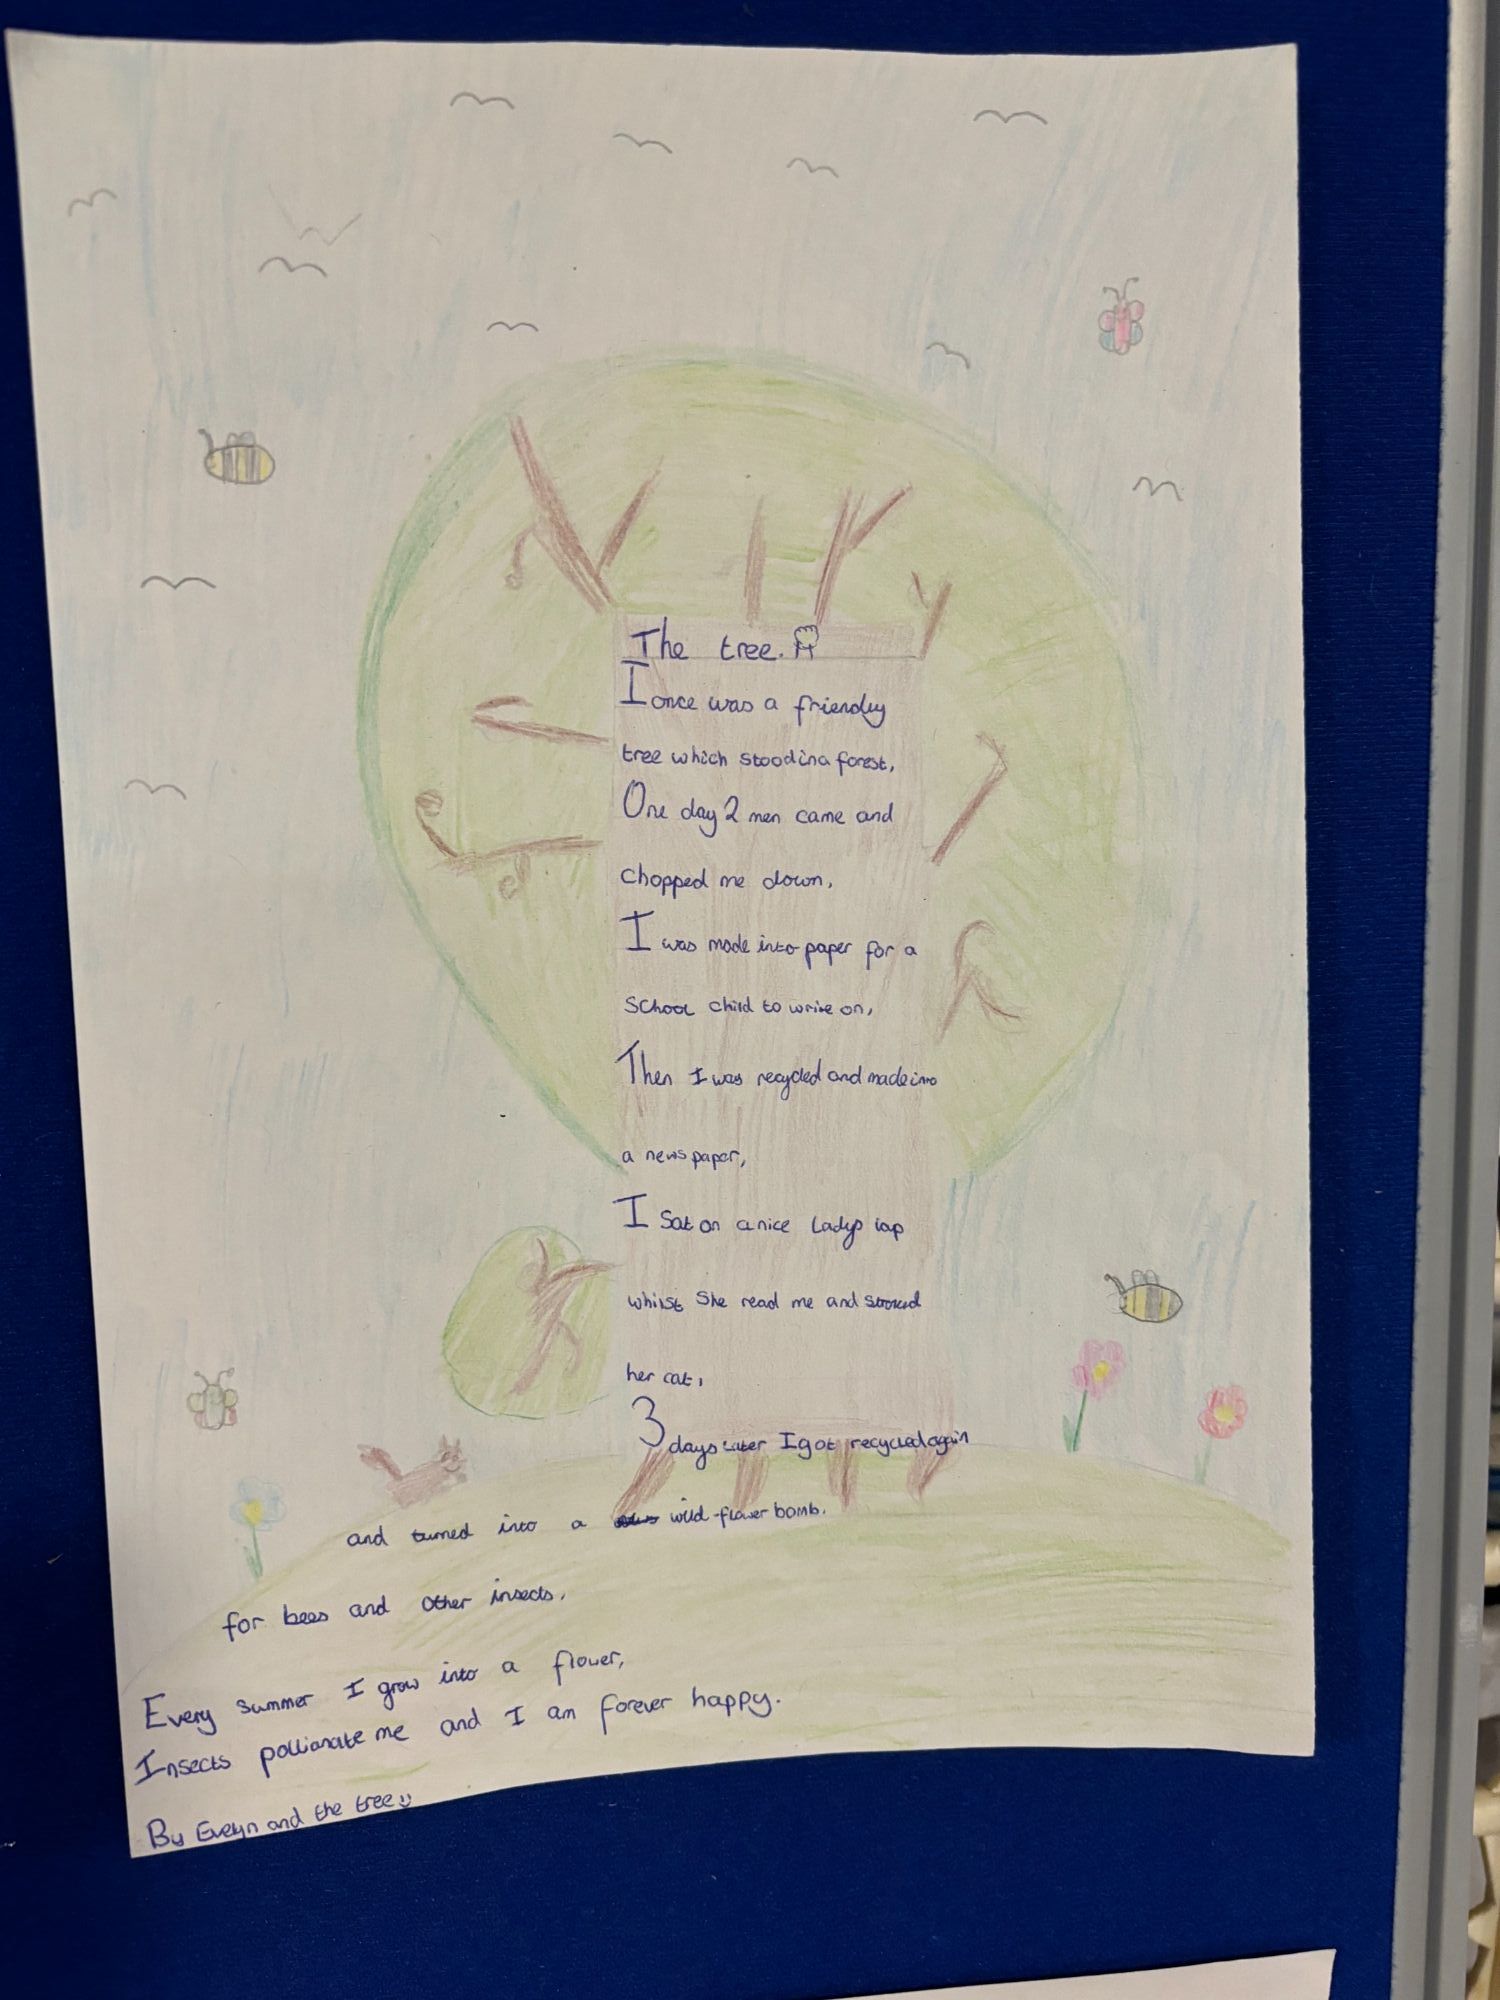 The tree.
I once was a friendly
tree which stood in a forest,
One day 2 men came and
chopped me down,
I was made into paper for a
school child to write on,
Then I was recycled and made into
a newspaper,
I sat on a nice ladys lap
whilst she read me and stroked
her cat,
3 days later I got recycled again
and turned into a wild-flower bomb.
for bees and other insects.
Every summer I grow into a flower,
Insects pollianate me and I am forever happy.
By Evelyn and the tree